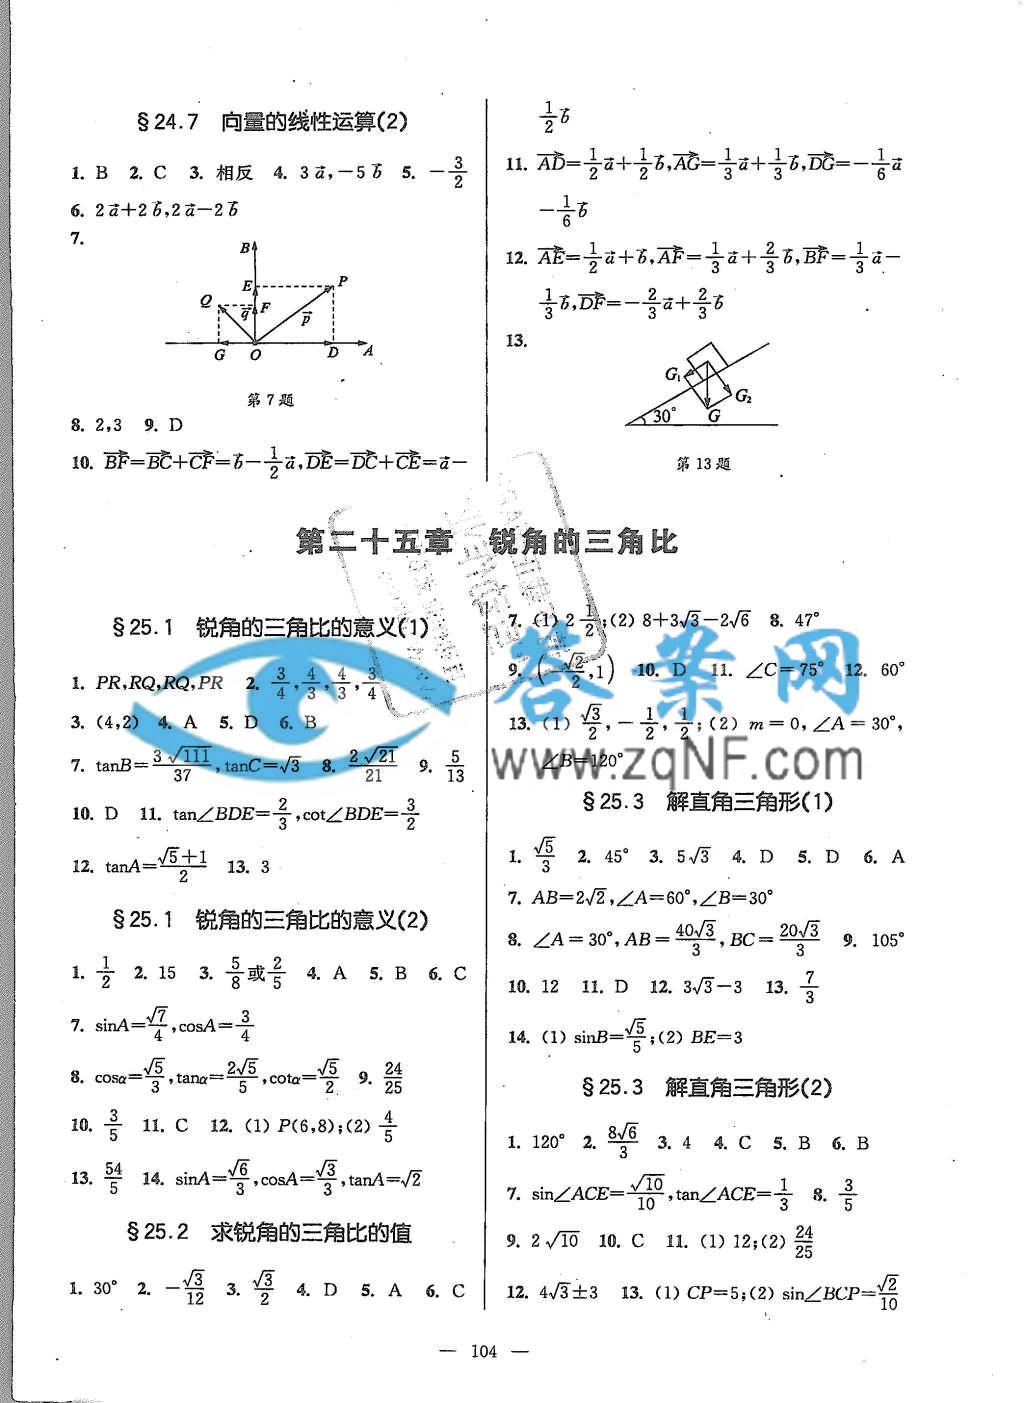 §24.7 向量的线性运算(2)
1. B 2. C 3. 相反 4. 3a⃗,−5b⃗ 5. −3/2
6. 2a⃗+2b⃗,2a⃗−2b⃗
7.
B
E P
Q q⃗ F p⃗
G O D A
第7题
8. 2,3 9. D
10. BF⃗=BC⃗+CF⃗=b⃗−1/2a⃗,DE⃗=DC⃗+CE⃗=a⃗−
1/2b⃗
11. AD⃗=1/2a⃗+1/2b⃗,AG⃗=1/3a⃗+1/3b⃗,DG⃗=−1/6a⃗
−1/6b⃗
12. AE⃗=1/2a⃗+b⃗,AF⃗=1/3a⃗+2/3b⃗,BF⃗=1/3a⃗−
1/3b⃗,DF⃗=−2/3a⃗+2/3b⃗
13.
G₁
G₂
30° G
第13题
第二十五章 锐角的三角比
§25.1 锐角的三角比的意义(1)
1. PR,RQ,RQ,PR 2. 3/4,4/3,4/3,3/4
3. (4,2) 4. A 5. D 6. B
7. tanB=3√111/37,tanC=√3 8. 2√21/21 9. 5/13
10. D 11. tan∠BDE=2/3,cot∠BDE=3/2
12. tanA=(√5+1)/2 13. 3
§25.1 锐角的三角比的意义(2)
1. 1/2 2. 15 3. 5/8或2/5 4. A 5. B 6. C
7. sinA=√7/4,cosA=3/4
8. cosα=√5/3,tanα=2√5/5,cotα=√5/2 9. 24/25
10. 3/5 11. C 12. (1) P(6,8);(2) 4/5
13. 54/5 14. sinA=√6/3,cosA=√3/3,tanA=√2
§25.2 求锐角的三角比的值
1. 30° 2. −√3/12 3. √3/2 4. D 5. A 6. C
7. (1) 2 1/2;(2) 8+3√3−2√6 8. 47°
9. (√2/2,1) 10. D 11. ∠C=75° 12. 60°
13. (1) √3/2,−1/2,1/2;(2) m=0,∠A=30°,
∠B=120°
§25.3 解直角三角形(1)
1. √5/3 2. 45° 3. 5√3 4. D 5. D 6. A
7. AB=2√2,∠A=60°,∠B=30°
8. ∠A=30°,AB=40√3/3,BC=20√3/3 9. 105°
10. 12 11. D 12. 3√3−3 13. 7/3
14. (1) sinB=√5/5;(2) BE=3
§25.3 解直角三角形(2)
1. 120° 2. 8√6/3 3. 4 4. C 5. B 6. B
7. sin∠ACE=√10/10,tan∠ACE=1/3 8. 3/5
9. 2√10 10. C 11. (1) 12;(2) 24/25
12. 4√3±3 13. (1) CP=5;(2) sin∠BCP=√2/10
— 104 —
答案网
www.zqNF.com